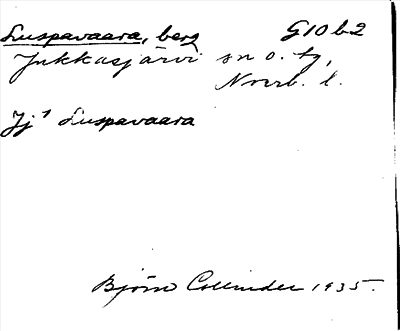 Luspavaara, berg G10b2
Jukkasjärvi sn o. tg,
Norrb. l.
Jj¹ Luspavaara
Björn Collinder 1935.